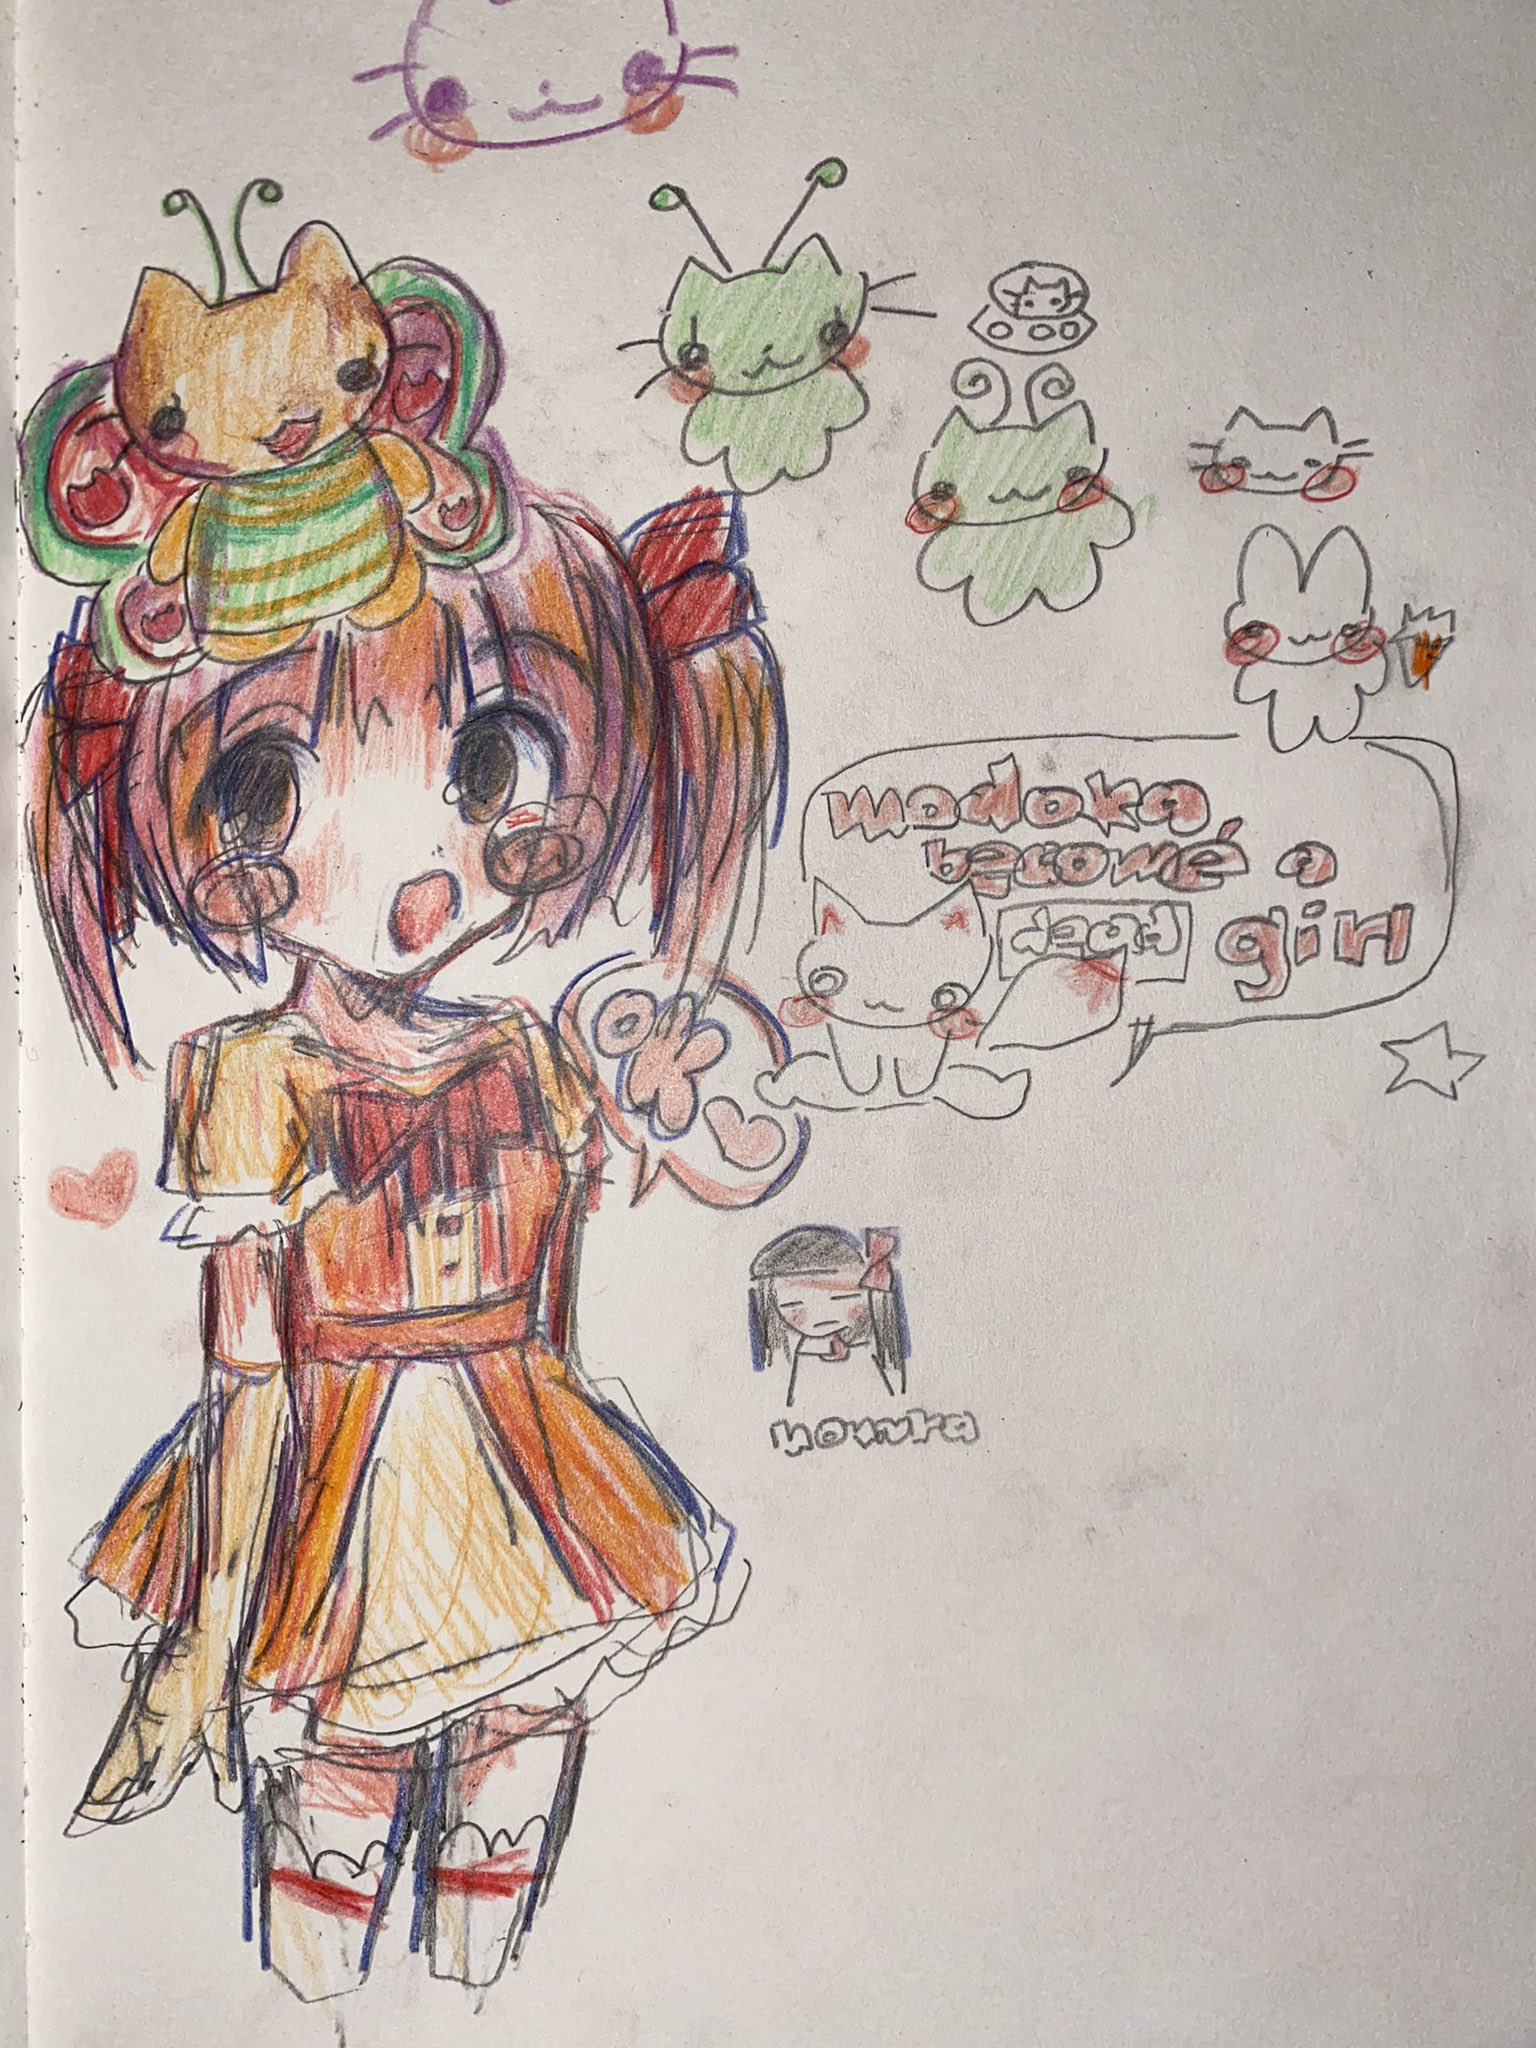 madoka
become a
dead girl
ok
homura